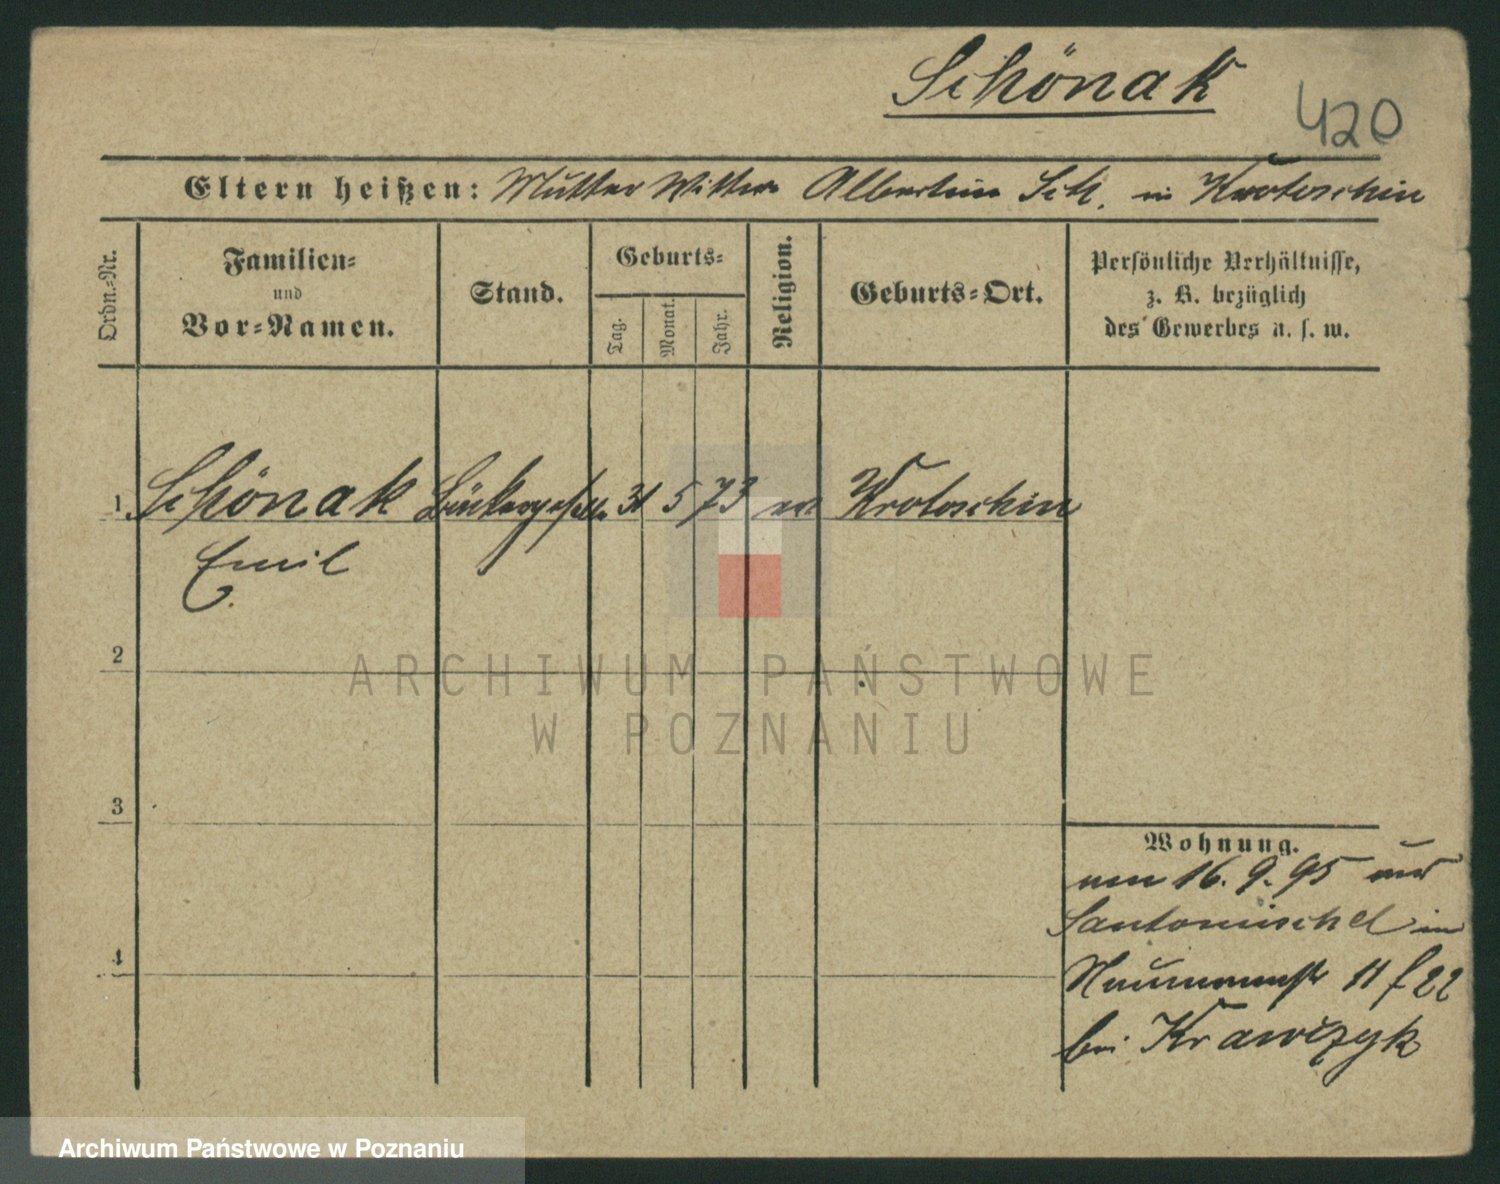 Schönak
420
Eltern heißen: Mutter Wittwe Albertine Sch. in Krotoschin
Ordn.-Nr.
Familien-
und
Vor-Namen.
Stand.
Geburts-
Tag.
Monat.
Jahr.
Religion.
Geburts-Ort.
Persönliche Verhältnisse,
z. B. bezüglich
des Gewerbes u. s. w.
1 Schönak Bäckergeselle 31 5 73 ev Krotoschin
Emil
2
ARCHIWUM PAŃSTWOWE
W POZNANIU
3
Wohnung.
16. 9. 95 aus
Santomischel in
11 f 22
bei Krawczyk
4
Archiwum Państwowe w Poznaniu